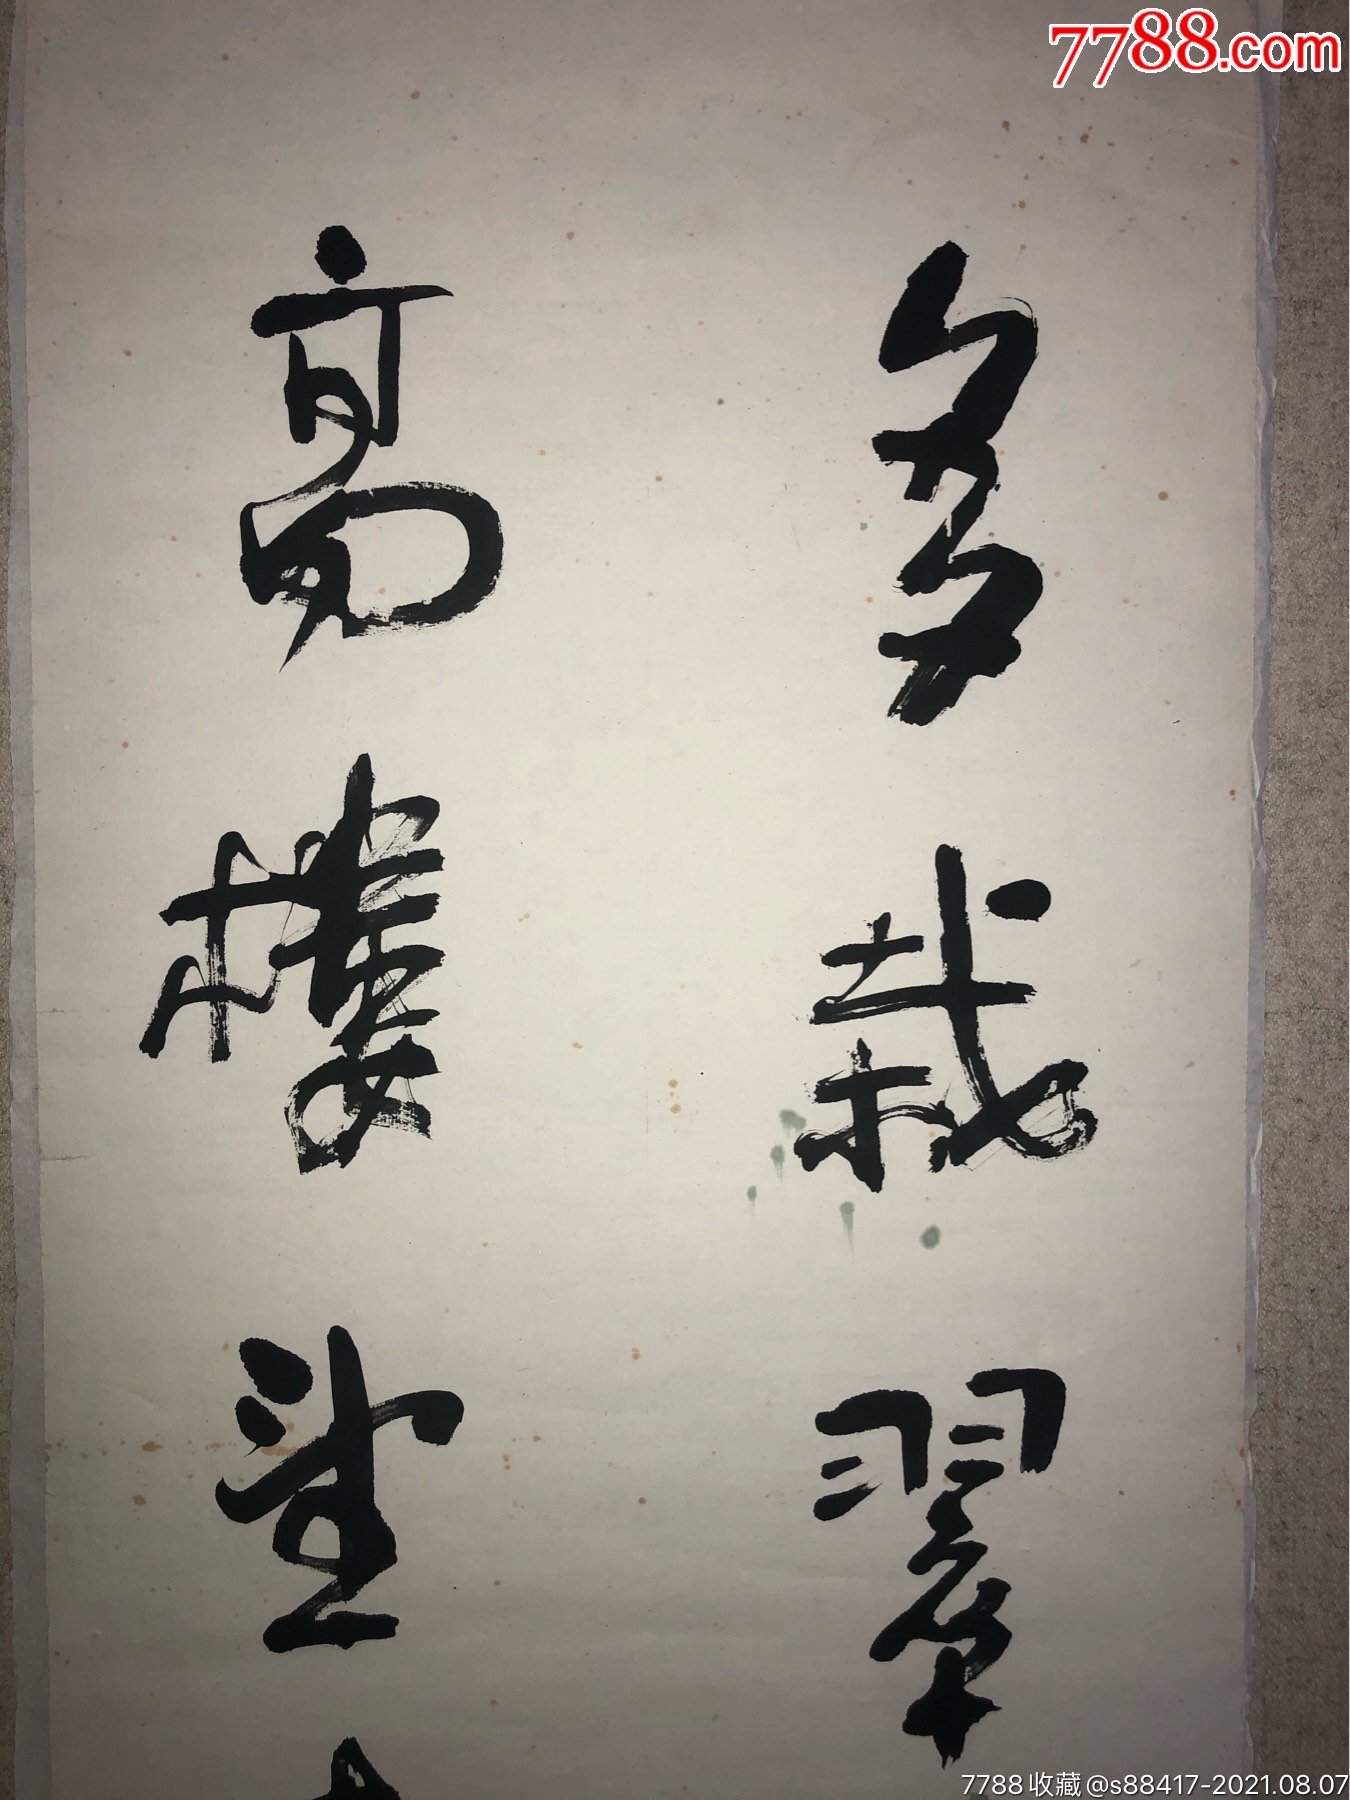 7788.com
多栽翠
高楼望
7788收藏@s88417-2021.08.07